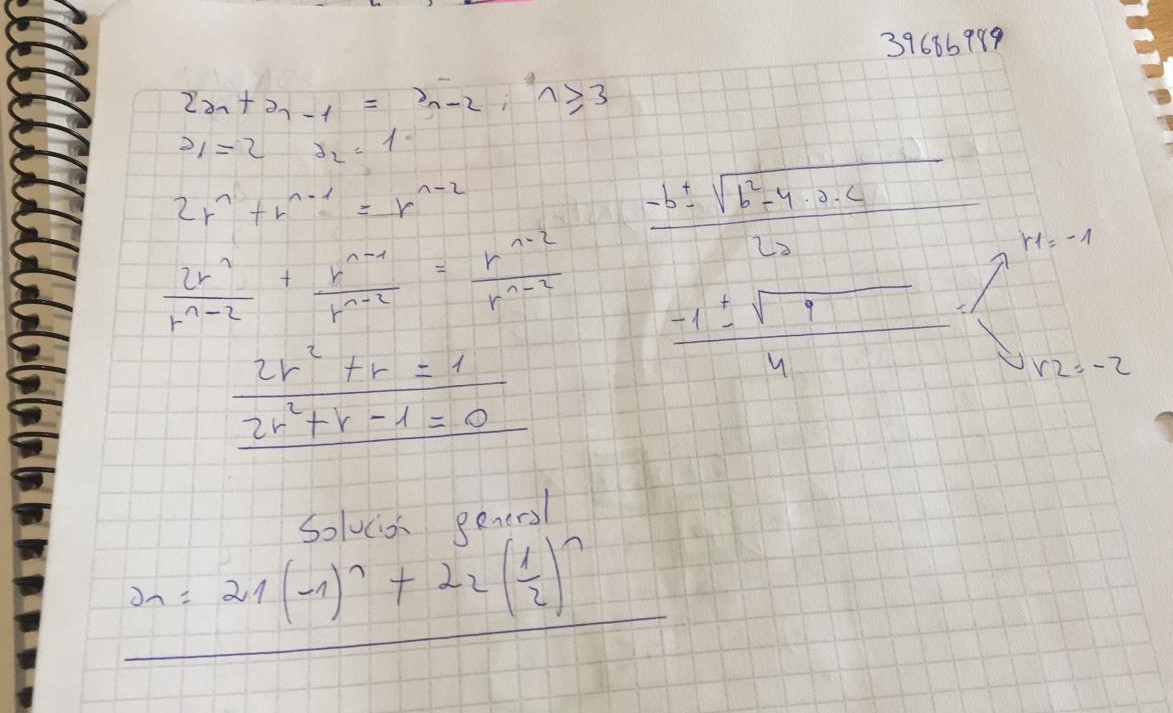 39686989
2an + an-1 = an-2 ; n ≥ 3
a1 = 2 a2 = 1
2r^n + r^n-1 = r^n-2
2r^n / r^n-2 + r^n-1 / r^n-2 = r^n-2 / r^n-2
2r^2 + r = 1
2r^2 + r - 1 = 0
-b ± √b^2 - 4 . a . c / 2a
-1 ± √9 / 4 = r1 = -1
r2 = -2
Solución general
an = a1 (-1)^n + a2 (1/2)^n